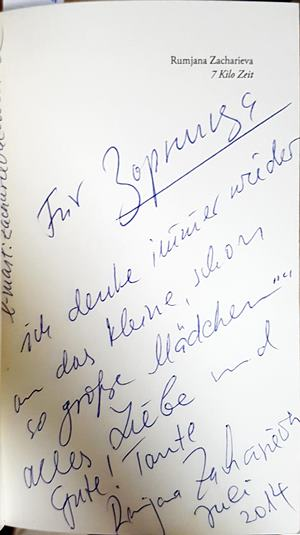 Rumjana Zacharieva
7 Kilo Zeit
Für Зорница
ich denke immer wieder
an das kleine, schon
so große Mädchen""
alles Liebe und
Gute! Tante
Rumjana Zacharieva
Juli
2014
e-mail: zacharieva